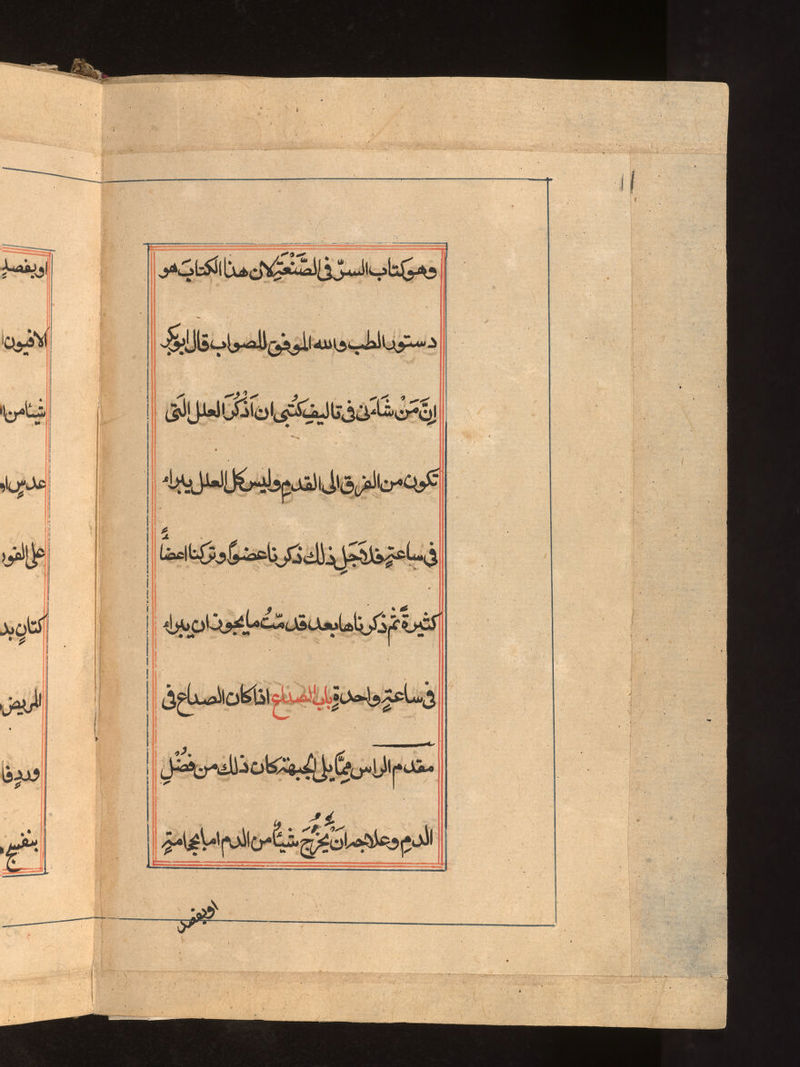 ١١
وهو كتاب السرّ فى الصَّنْعَةِ لان هذا الكتابَ هو
دستور الطب والله الموفق للصواب قال ابو بكر
اِنَّ مَنْ شَاءَنى فى تاليفِ كُتبى ان اَذْكُرَ العلل الَتى
تكون من الفرق الى القدمِ وليس كل العلل يبراء
فى ساعةٍ فلاَجَلِ ذلك ذكرنا عضواً وتركنا اعضاً
كثيرةً ثم ذكرناها بعد قدمّتُ ما يجوز ان يبراء
فى ساعةٍ واحدةٍ باب الصداع اذا كان الصداع فى
مقدم الراس مِمَّا يلى الجبهة كان ذلك من فضْلِ
الدمِ وعلاجه انْ يُخْرُجَ شيئاً من الدم اما بحجامةٍ
او بفصد
او بفصدٍ
الافيون
شيئا من
عدسٍ او
على الفور
كتانٍ
المريض
وردٍ
بنفسج